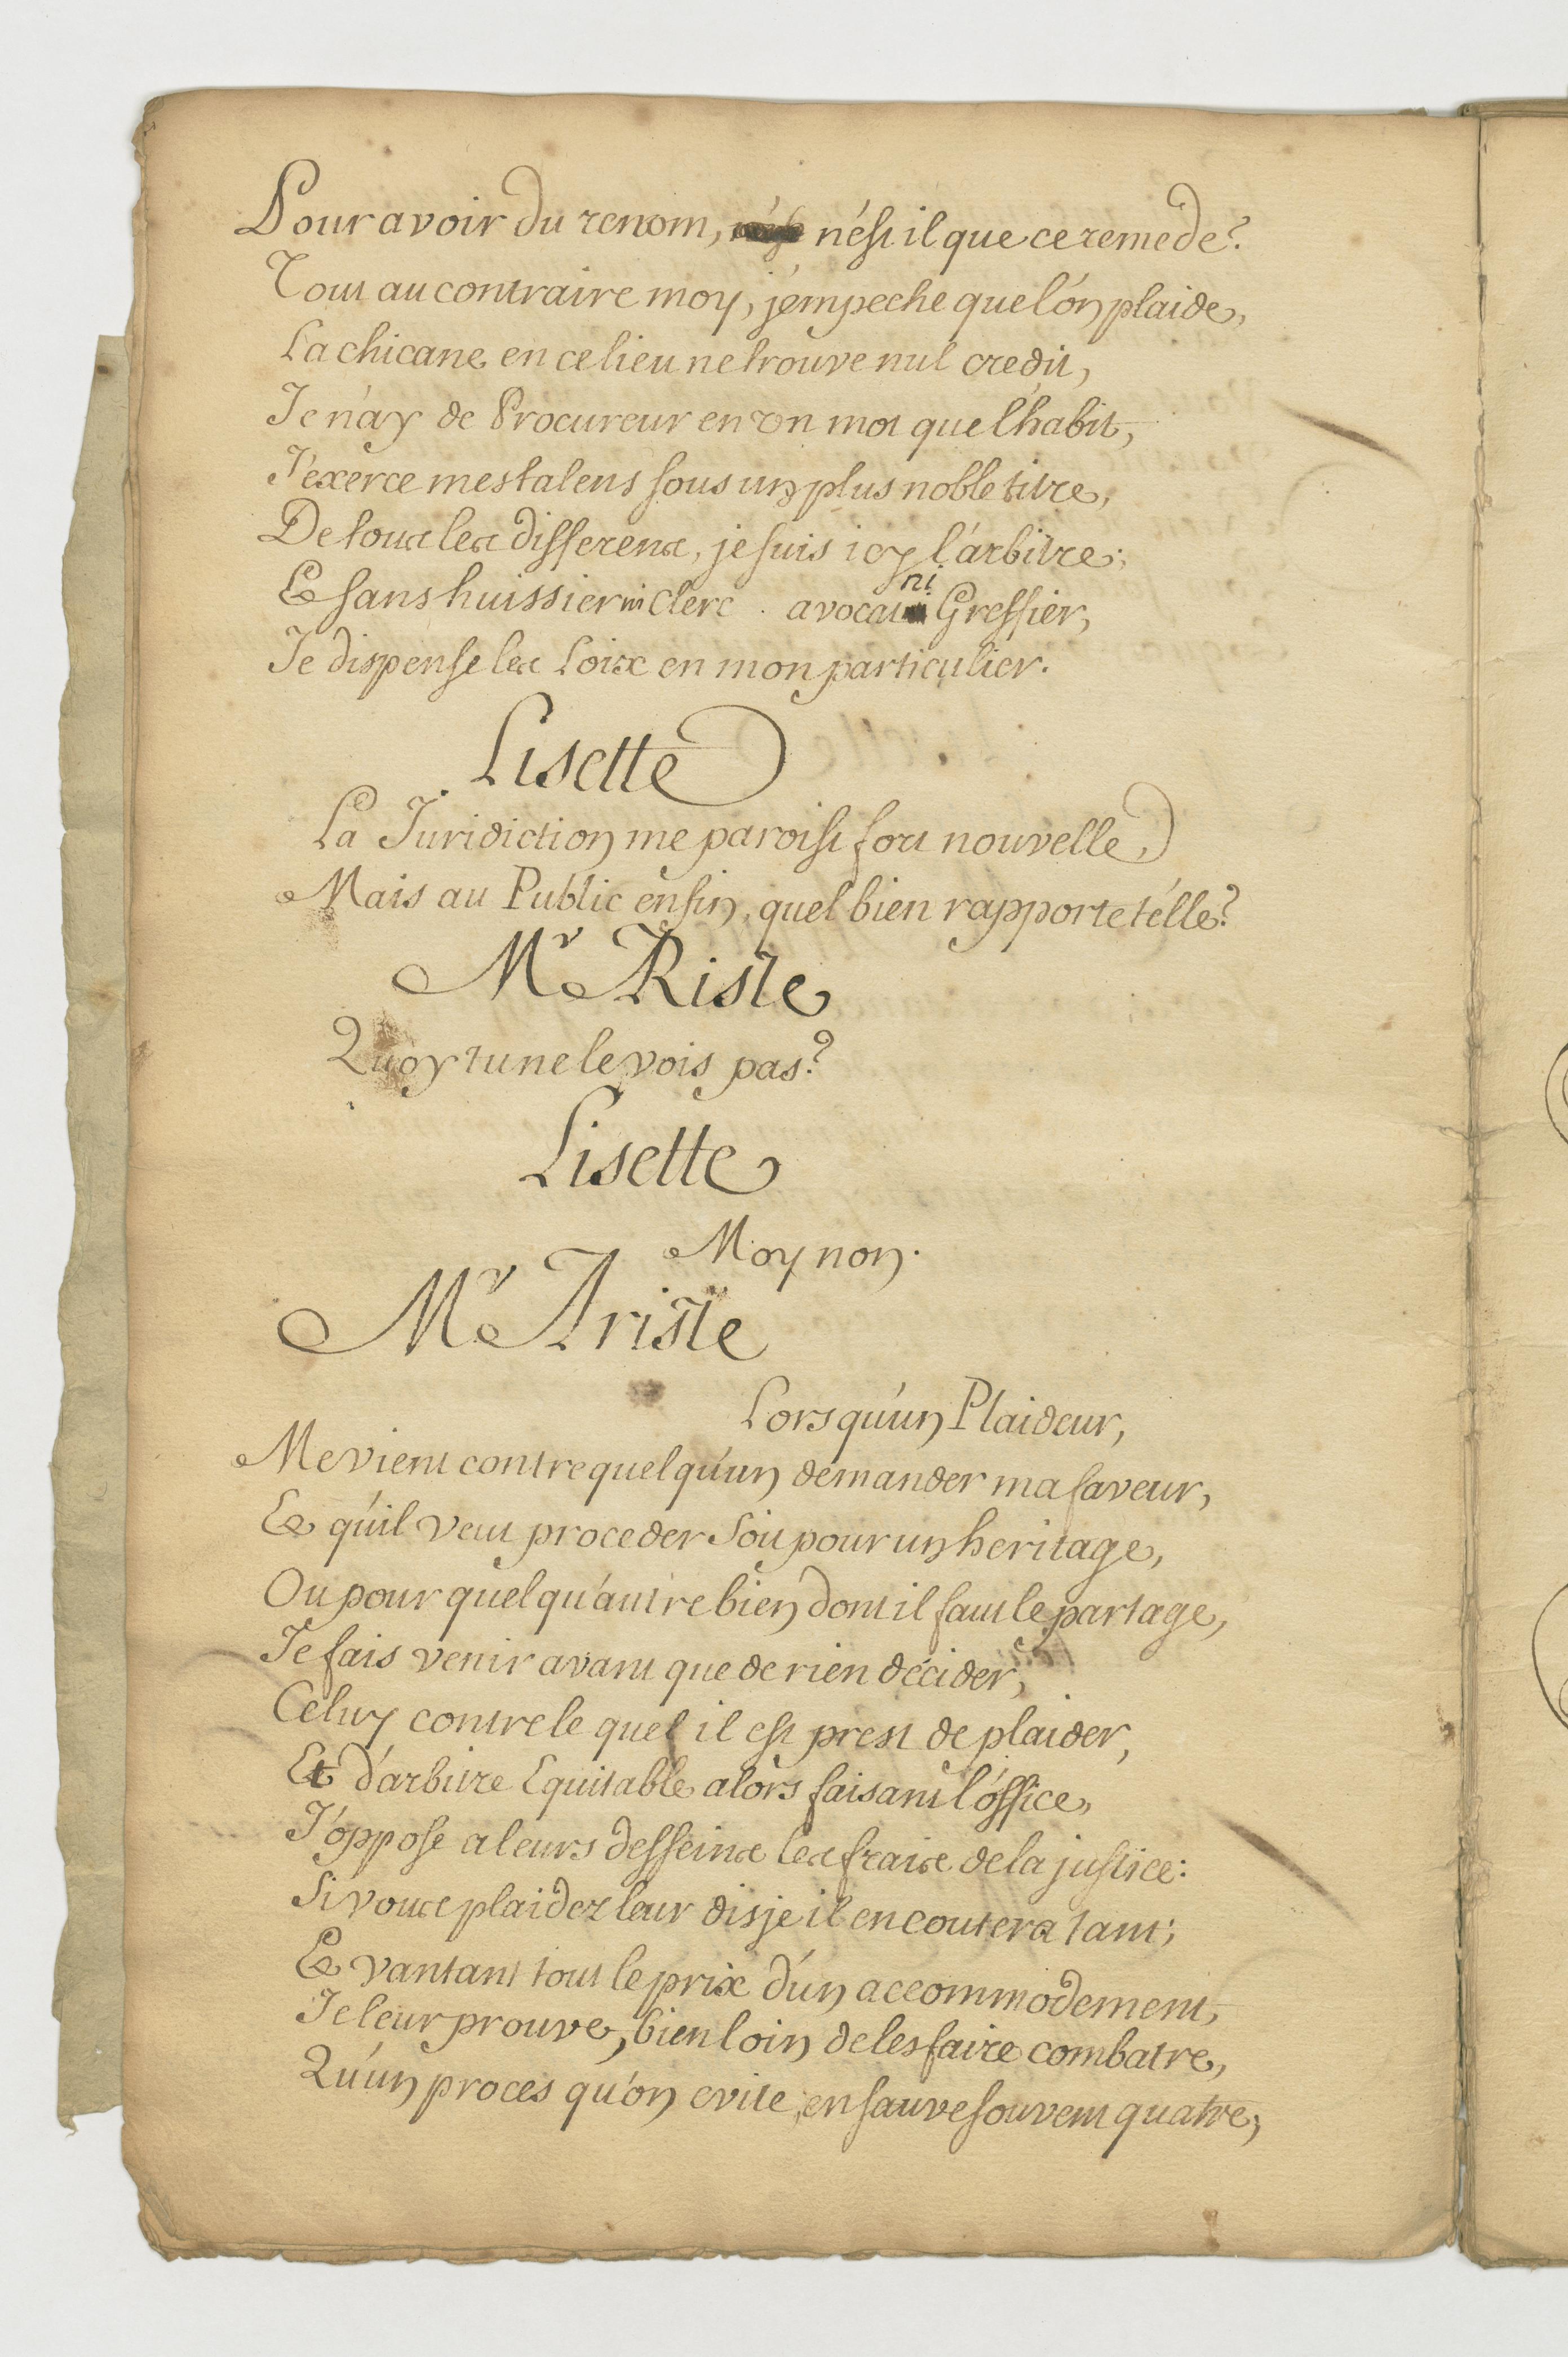 Pour avoir du renom, n'est il que ce remede?
Tout au contraire moy, j'empeche que l'on plaide,
La chicane en ce lieu ne trouve nul credit,
Je n'ay de Procureur en un mot que l'habit,
J'exerce mes talens sous un plus noble titre,
De tous les differens, je suis icy l'arbitre;
Et sans huissier ni Clerc . avocat ni Greffier,
Je dispense les Loix en mon particulier.
Lisette
La Juridiction me paroist fort nouvelle,
Mais au Public enfin, quel bien rapporte t'elle?
Mr Ariste
Quoy tu ne le vois pas?
Lisette
Moy non.
Mr Ariste
Lorsqu'un Plaideur,
Me vient contre quelqu'un demander ma faveur,
Et qu'il veut proceder soit pour un heritage,
Ou pour quelqu'autre bien dont il faut le partage,
Je fais venir avant que de rien décider,
Celuy contre le quel il est prest de plaider,
Et d'arbitre Equitable alors faisant l'office,
J'oppose a leurs desseins les frais de la justice:
Si vous plaidez leur dis je il en coutera tant;
Et vantant tout le prix d'un accommodement,
Je leur prouve, bien loin de les faire combatre,
Qu'un proces qu'on evite, en sauve souvent quatre,